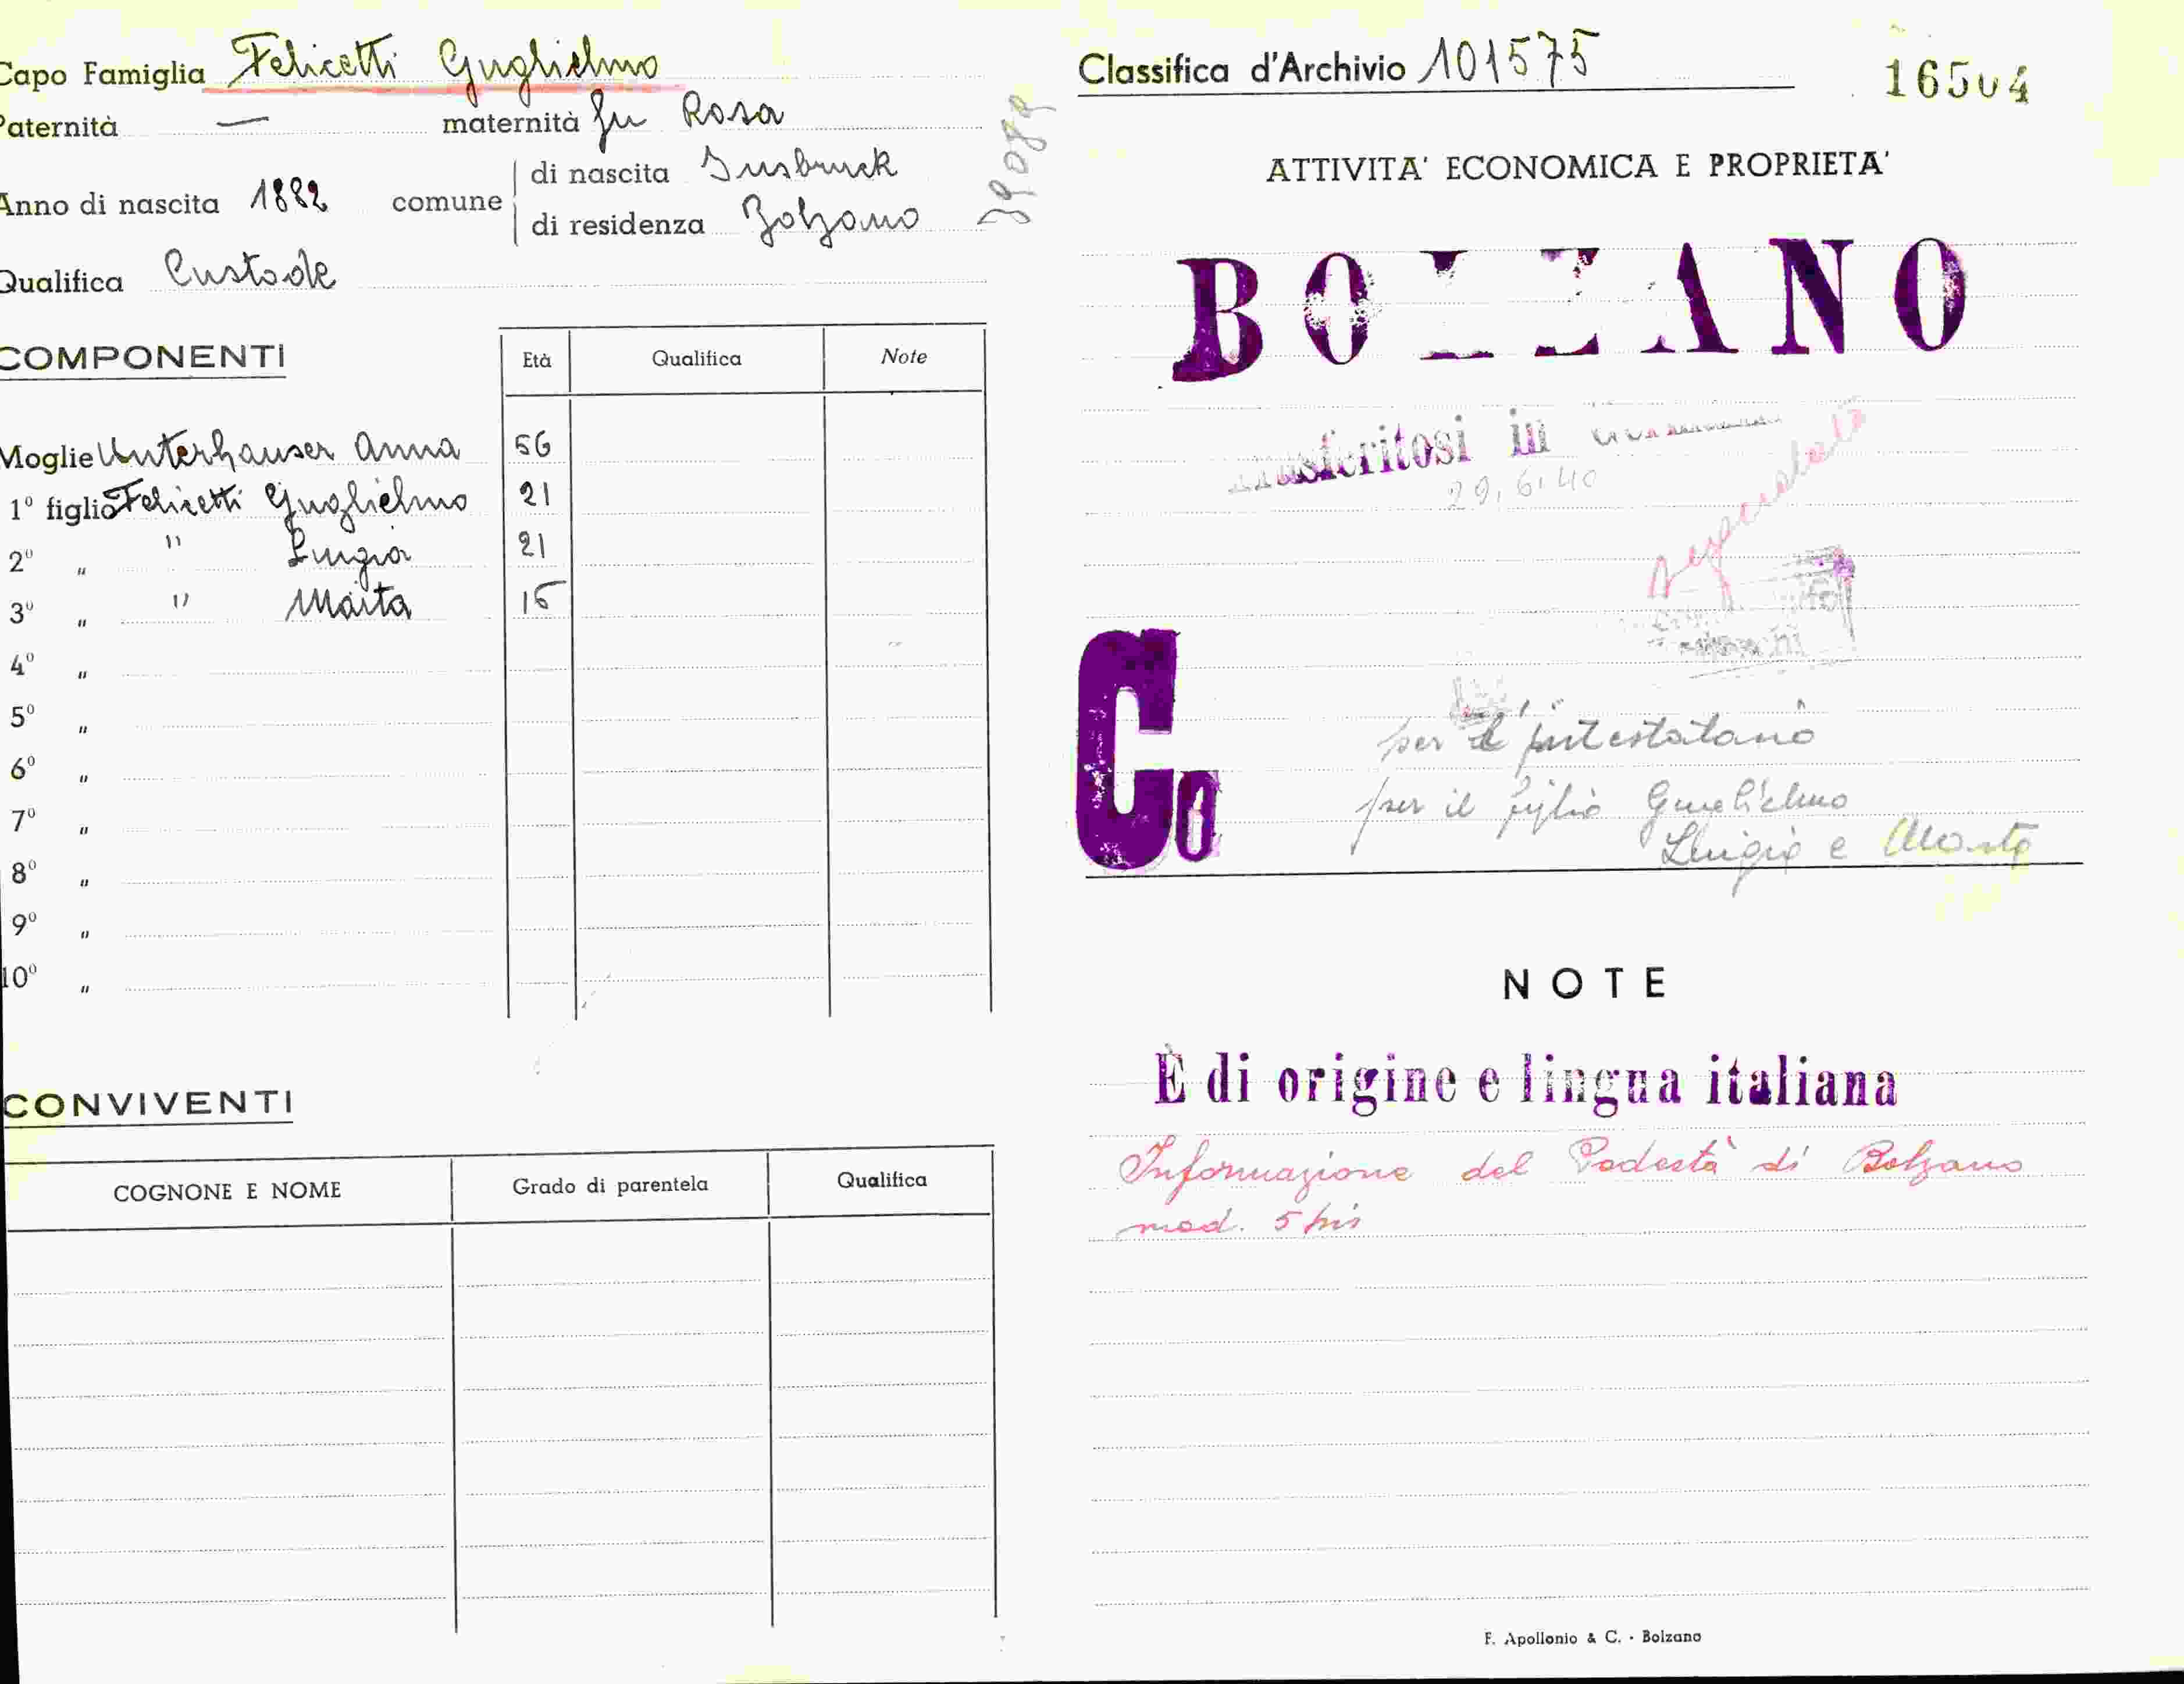 Capo Famiglia Felicetti Guglielmo
Paternità — maternità fu Rosa
Anno di nascita 1882 comune di nascita Insbruck
di residenza Bolzano
Qualifica Custode
COMPONENTI
Età Qualifica Note
Moglie Unterhauser Anna 56
1º figlio Felicetti Guglielmo 21
2º " " Luigia 21
3º " " Marta 15
4º "
5º "
6º "
7º "
8º "
9º "
10º "
CONVIVENTI
COGNONE E NOME Grado di parentela Qualifica
Classifica d'Archivio 101575
16504
ATTIVITA' ECONOMICA E PROPRIETA'
BOLZANO
trasferitosi in
29.6.40
Co
per il intestatario
per il figlio Guglielmo
Luigia e Marta
NOTE
È di origine e lingua italiana
Informazione del Podestà di Bolzano
mod. 5 bis
F. Apollonio & C. - Bolzano